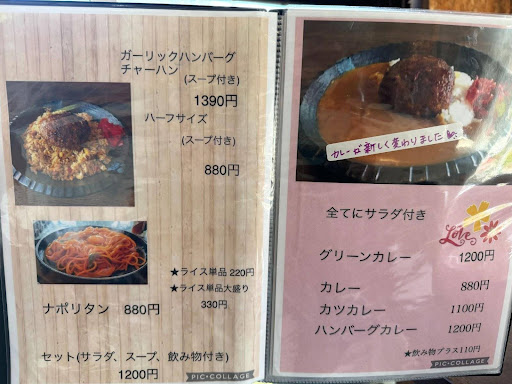 ガーリックハンバーグ
チャーハン
(スープ付き)
1390円
ハーフサイズ
(スープ付き)
880円
★ライス単品 220円
★ライス単品大盛り
330円
ナポリタン 880円
セット(サラダ、スープ、飲み物付き)
1200円
PIC•COLLAGE
カレーが新しく変わりました
全てにサラダ付き
Love
グリーンカレー 1200円
カレー 880円
カツカレー 1100円
ハンバーグカレー 1200円
★飲み物プラス110円
PIC•COLLAGE